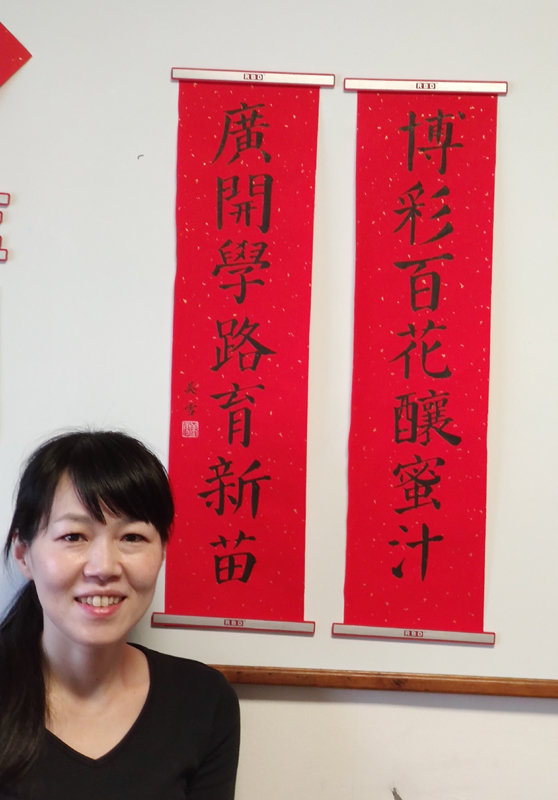 RBD
博彩百花釀蜜汁
RBD
RBD
廣開學路育新苗
美雪
RBD